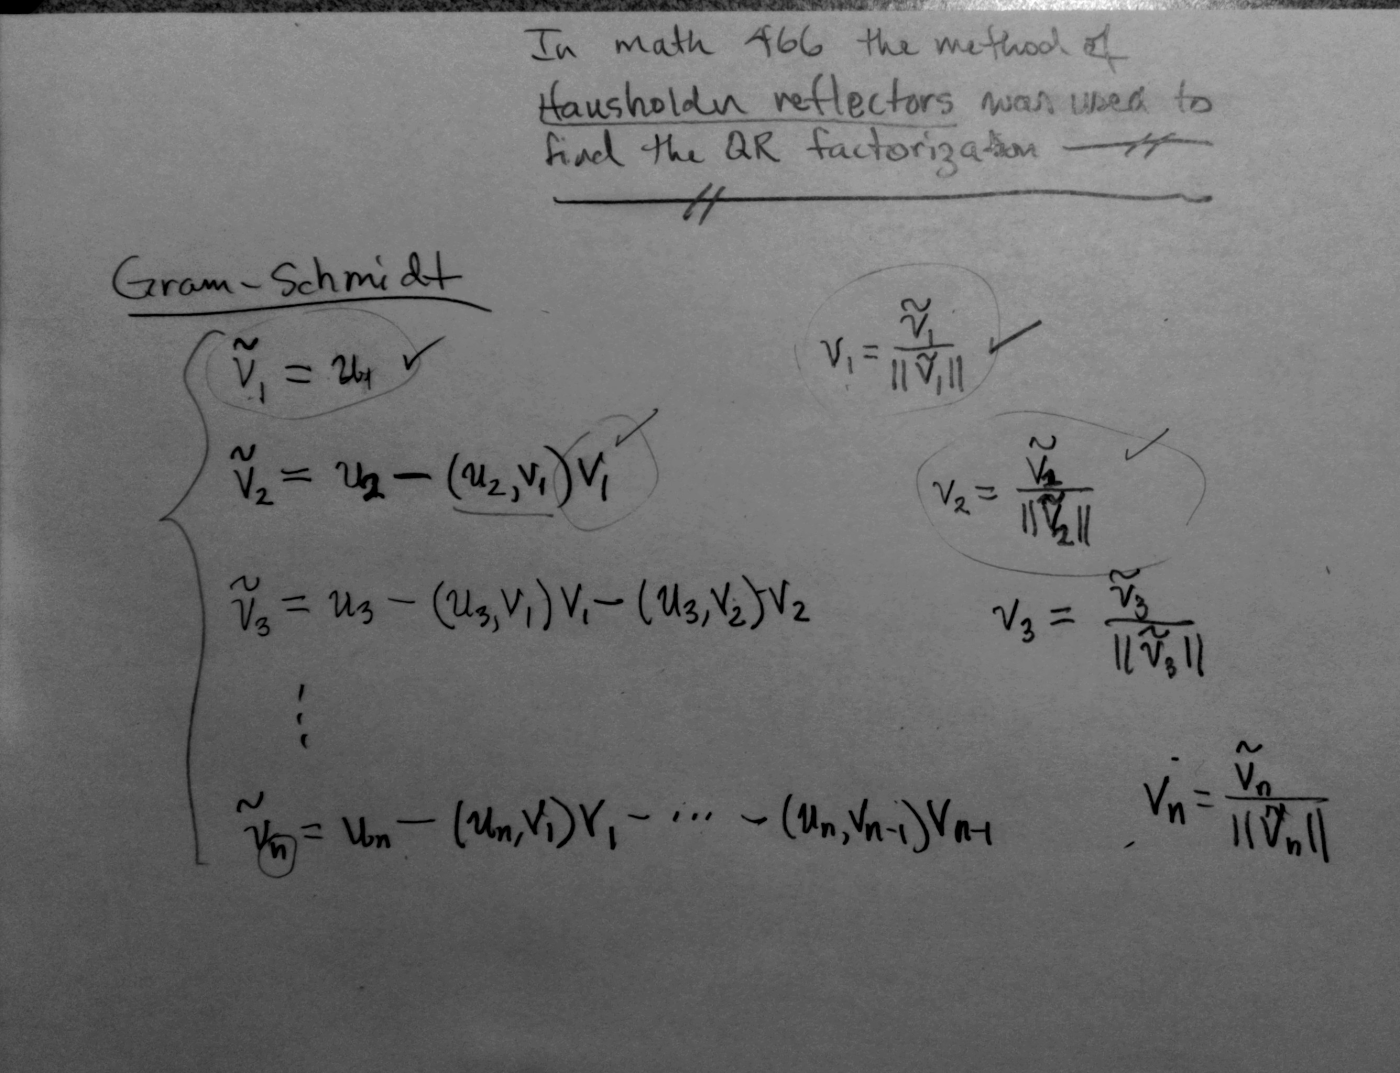 In math 466 the method of
Hausholder reflectors was used to
find the QR factorization
Gram-Schmidt
ṽ₁ = u₁ ✓ v₁ = ṽ₁/||ṽ₁|| ✓
ṽ₂ = u₂ - (u₂,v₁)v₁ ✓ v₂ = ṽ₂/||ṽ₂|| ✓
ṽ₃ = u₃ - (u₃,v₁)v₁ - (u₃,v₂)v₂ v₃ = ṽ₃/||ṽ₃||
⋮
ṽₙ = uₙ - (uₙ,v₁)v₁ - ⋯ - (uₙ,vₙ₋₁)vₙ₋₁ vₙ = ṽₙ/||ṽₙ||